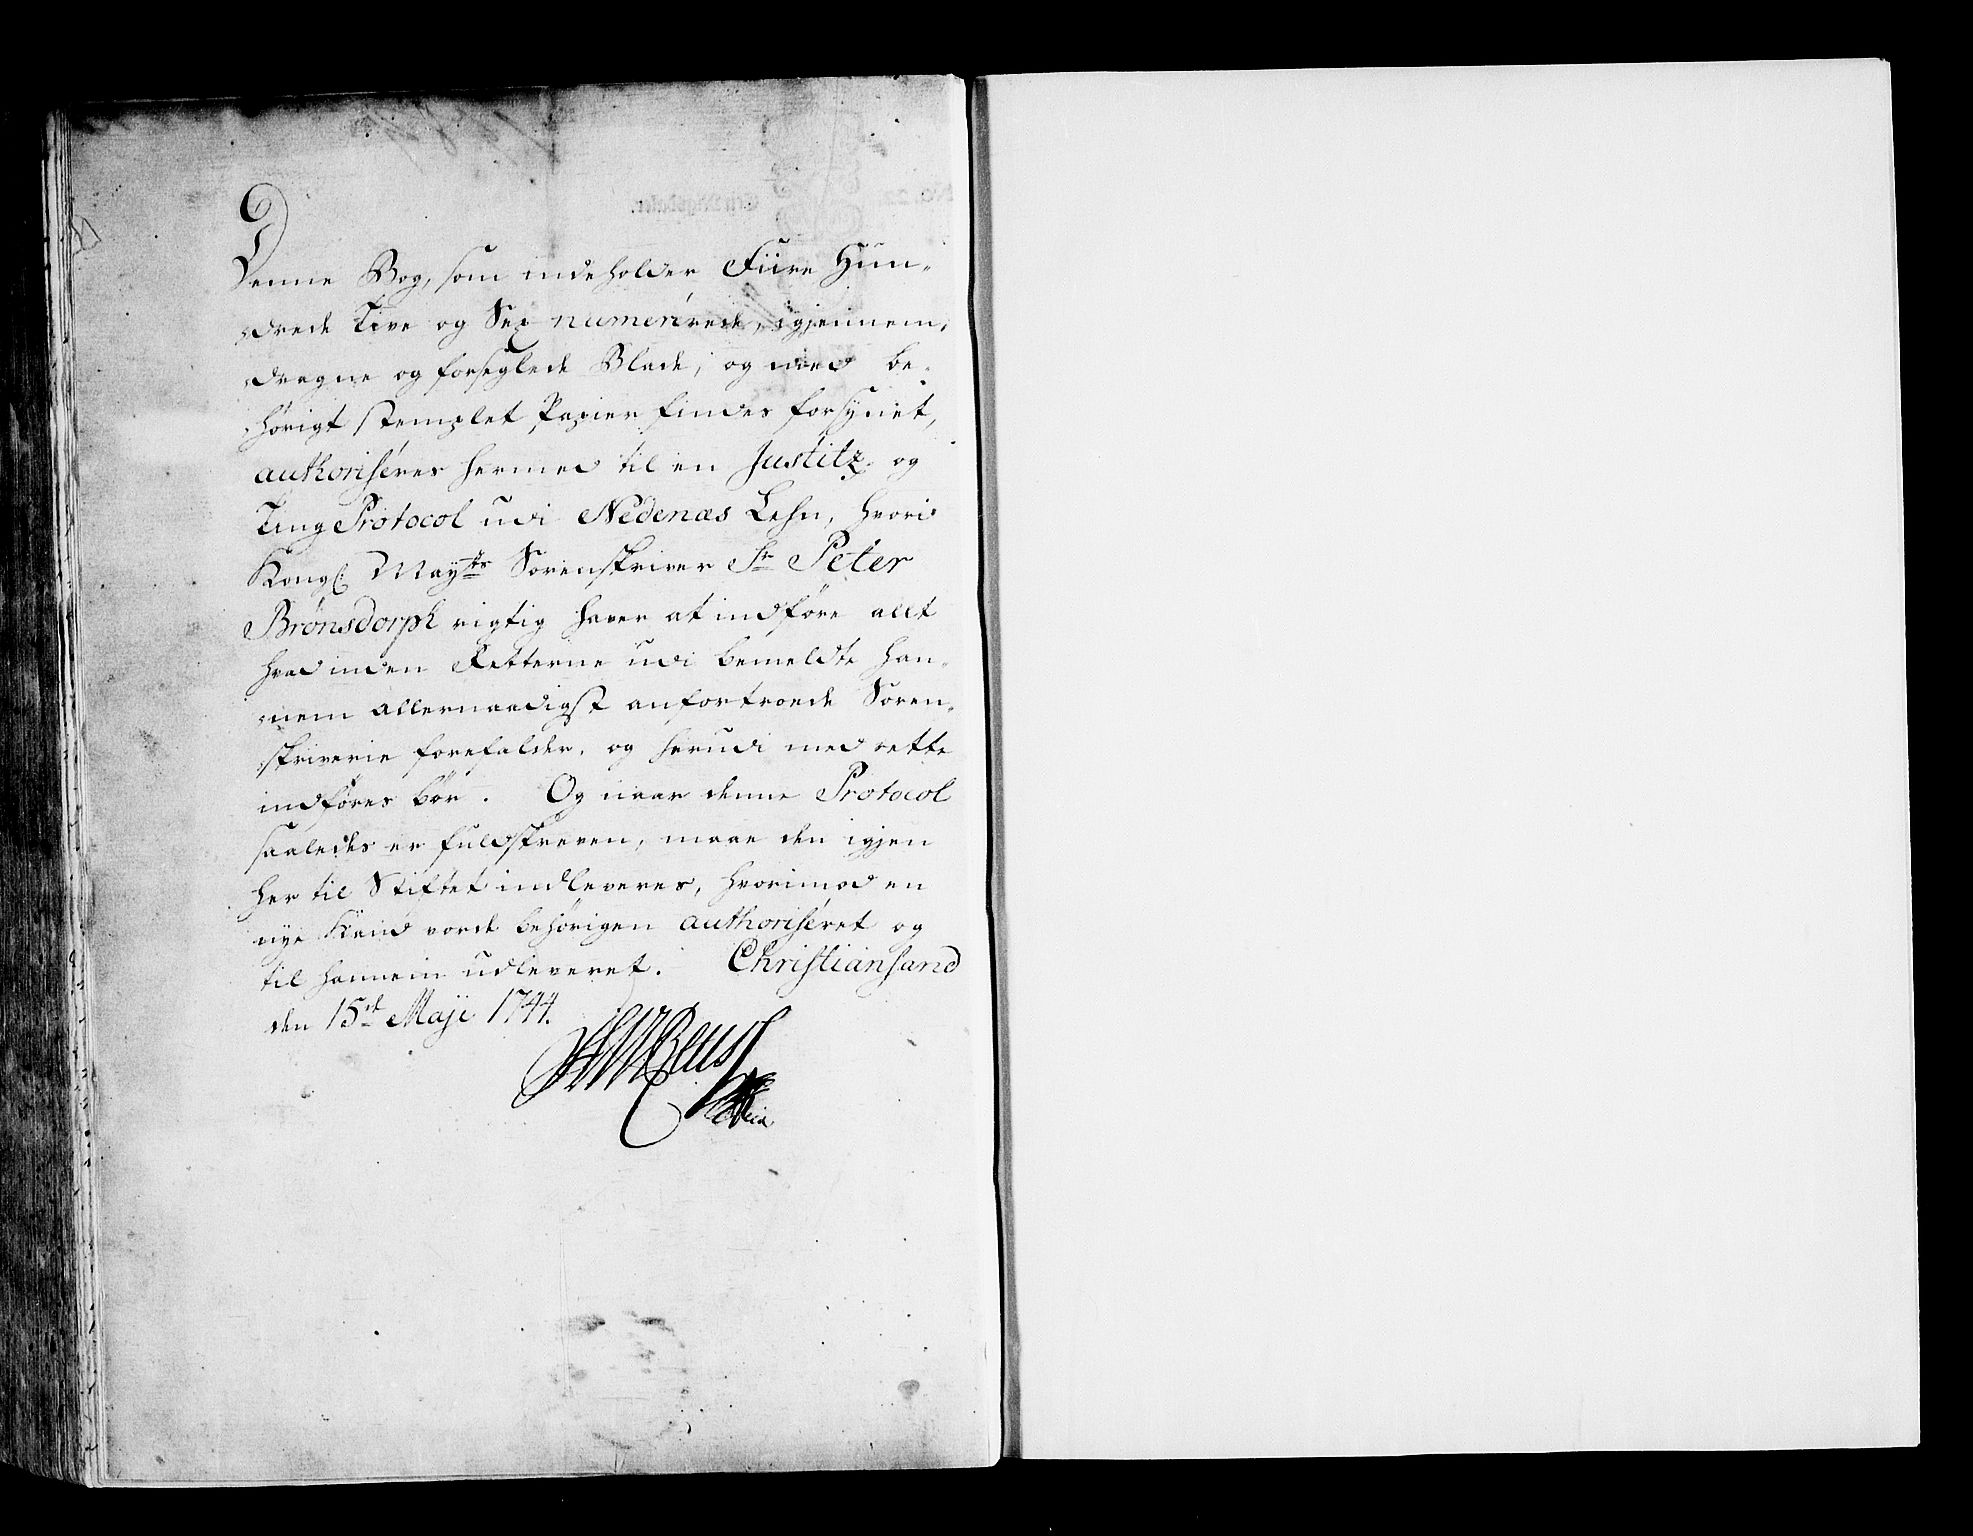 Denne Bog, som indeholder Fiire Hun-
drede Tive og Sex numerérede, igjennem-
dragne og forseglede Blade, og med be-
hörigt stemplet Papier findes forsynet,
authoriséres hermed til en Justitz og
Ting Protocol udi Nedenæs Lehn, hvori
Kongl. Mayts Sorenskriver Sr Peter
Brönsdorph rigtig haver at indföre alt
hvad inden Retterne udi bemeldte han-
nem allernaadigst anfortroede Soren-
skriverie forefalder, og herudi med rette
indföres bör. Og naar denne Protocol
saaledes er fuldskreven, maae den igjen
her til Stiftet indleveres, hvorimod en
nye skand vorde behörigen authoriséret og
til hannem udleveret. Christiansand
den 15de Maji 1744.